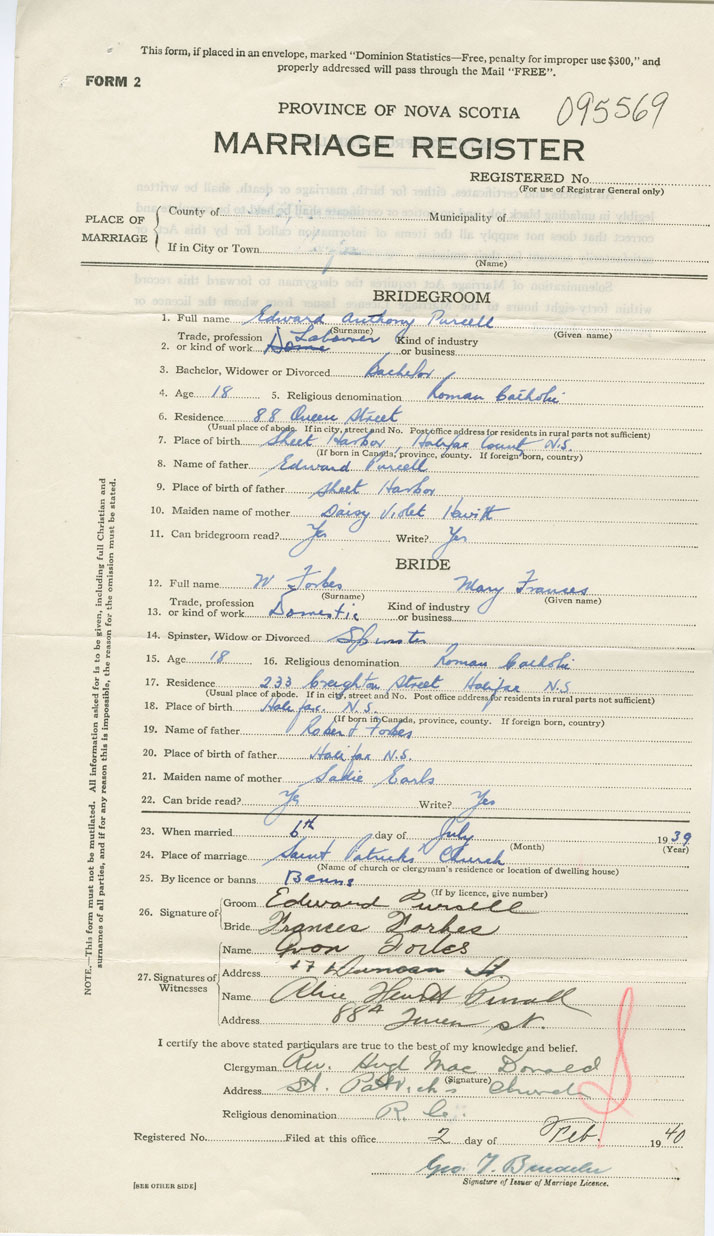 This form, if placed in an envelope, marked "Dominion Statistics—Free, penalty for improper use $300," and
properly addressed will pass through the Mail "FREE".
FORM 2
PROVINCE OF NOVA SCOTIA 095569
MARRIAGE REGISTER
REGISTERED No.
(For use of Registrar General only)
PLACE OF MARRIAGE
County of Municipality of
If in City or Town
(Name)
BRIDEGROOM
1. Full name Edward Anthony Purcell
(Surname) (Given name)
2. Trade, profession or kind of work Labourer Kind of industry or business
3. Bachelor, Widower or Divorced Bachelor
4. Age 18 5. Religious denomination Roman Catholic
6. Residence 88 Queen Street
(Usual place of abode. If in city, street and No. Post office address for residents in rural parts not sufficient)
7. Place of birth Sheet Harbor, Halifax County N.S.
(If born in Canada, province, county. If foreign born, country)
8. Name of father Edward Purcell
9. Place of birth of father Sheet Harbor
10. Maiden name of mother Daisy Violet Hewitt
11. Can bridegroom read? Yes Write? Yes
BRIDE
12. Full name W Forbes Mary Frances
(Surname) (Given name)
13. Trade, profession or kind of work Domestic Kind of industry or business
14. Spinster, Widow or Divorced Spinster
15. Age 18 16. Religious denomination Roman Catholic
17. Residence 233 Creighton Street Halifax N.S
(Usual place of abode. If in city, street and No. Post office address for residents in rural parts not sufficient)
18. Place of birth Halifax. N.S.
(If born in Canada, province, county. If foreign born, country)
19. Name of father Robert Forbes
20. Place of birth of father Halifax N.S.
21. Maiden name of mother Sadie Earls
22. Can bride read? Yes Write? Yes
23. When married 6th day of July 1939
(Month) (Year)
24. Place of marriage Saint Patricks Church
(Name of church or clergyman's residence or location of dwelling house)
25. By licence or banns Banns
(If by licence, give number)
26. Signature of
Groom Edward Pursell
Bride Frances Forbes
27. Signatures of Witnesses
Name Forbes
Address Duncan St
Name Alice
Address 88A St.
I certify the above stated particulars are true to the best of my knowledge and belief.
Clergyman Rev. Hugh MacDonald
(Signature)
Address St. Patrick's Church
Religious denomination R. C.
Registered No. Filed at this office 2 day of Feb. 1940
Geo. T.
Signature of Issuer of Marriage Licence.
[SEE OTHER SIDE]
NOTE.—This form must not be mutilated. All information asked for is to be given, including full Christian and
surnames of all parties, and if for any reason this is impossible, the reason for the omission must be stated.